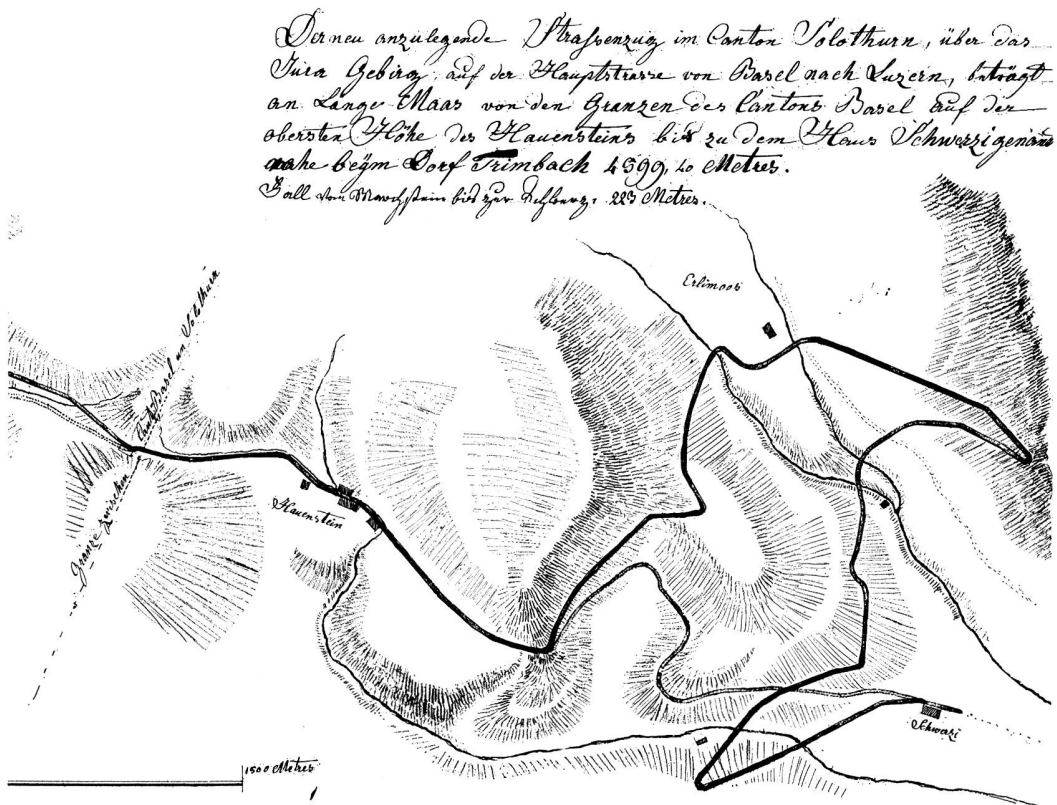 Der neu anzulegende Strassenzug im Canton Solothurn, über das
Jura Gebirg, auf der Hauptstrasse von Basel nach Luzern, beträgt
an Länge Maas von den Gränzen des Cantons Basel auf der
obersten Höhe des Hauensteins bis zu dem Haus Schwerzi genant
nahe beÿm Dorf Trimbach 4599,40 Metres.
Fall vom Marchstein bis zur Schwerz. 223 Metres.
Erlimoos
Gränze zwischen Cant. Basel un Solothurn
Hauenstein
Schwerzi
1500 Metres